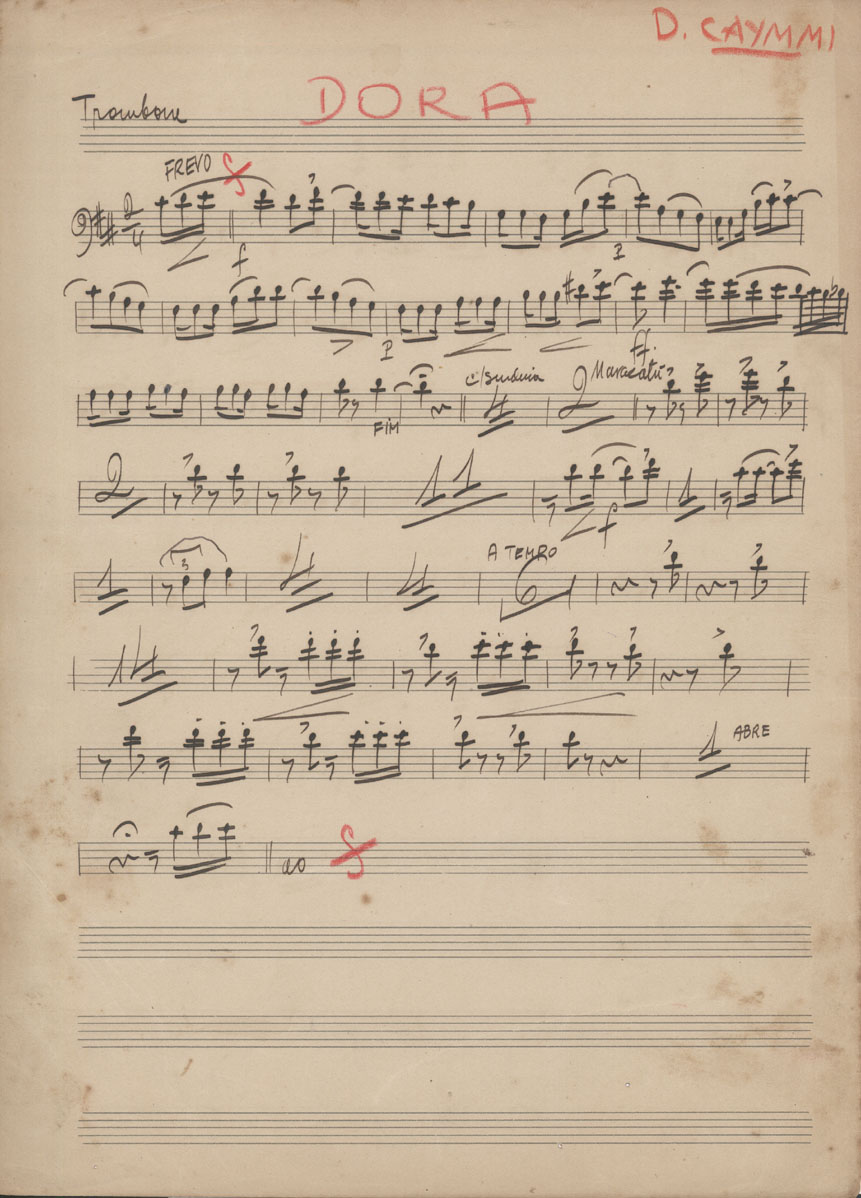 D. CAYMMI
DORA
Trombone
FREVO
2
4
f
P
P
ff.
4
2
Maracatú
FIM
2
11
f
1
3
A TEMPO
1
4
4
6
14
1
ABRE
ao